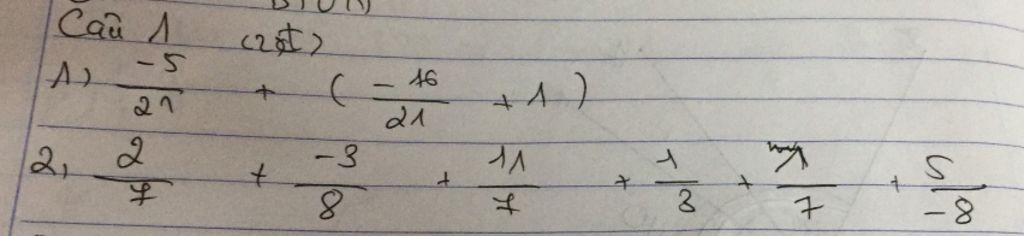 Câu 1 (2đ)
1) -5/21 + ( -16/21 + 1 )
2, 2/7 + -3/8 + 11/7 + 1/3 + 1/7 + 5/-8